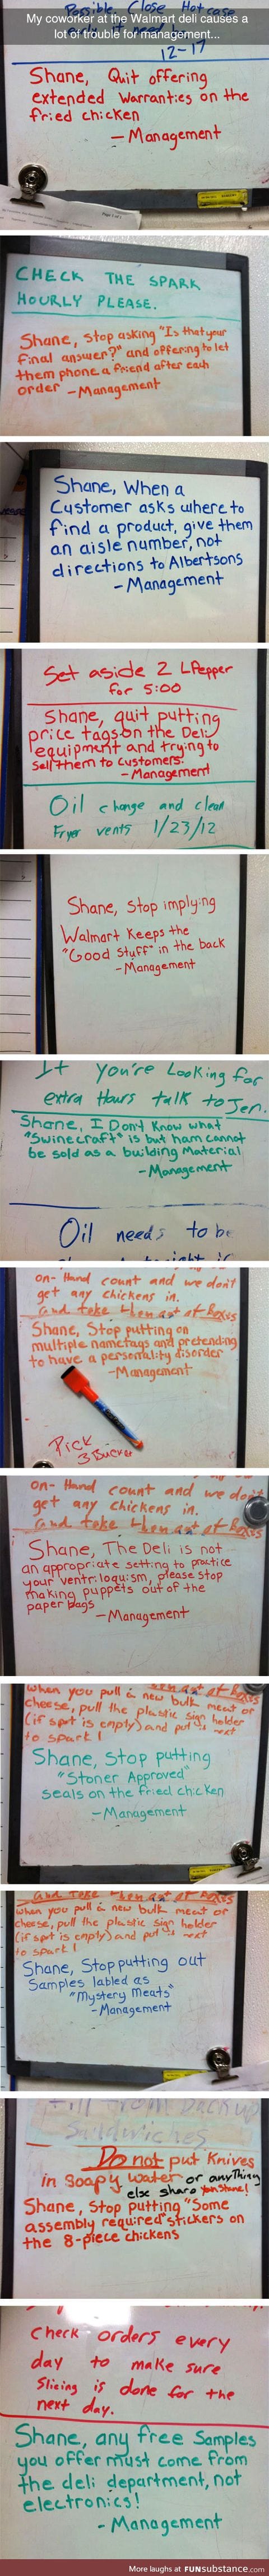 My coworker at the Walmart deli causes a
lot of trouble for management...
Possible. Close Hot case
12-17
Shane, Quit offering
extended Warranties on the
fried chicken
- Management
CHECK THE SPARK
HOURLY PLEASE.
Shane, Stop asking "Is that your
final answer?" and offering to let
them phone a friend after each
order - Management
Shane, When a
Customer asks where to
find a product, give them
an aisle number, not
directions to Albertsons
- Management
Set aside 2 L Pepper
for 5:00
Shane, quit putting
price tags on the Deli
equipment and trying to
sell them to customers.
- Management
Oil change and clean
Fryer vents 1/23/12
Shane, Stop implying
Walmart Keeps the
"Good Stuff" in the back
- Management
If you're Looking for
extra Hours talk to Jen.
Shane, I Don't Know what
"Swinecraft" is but ham cannot
be sold as a building Material
- Management
Oil needs to be
on-Hand count and we don't
get any chickens in.
and take them out of Boxes
Shane, Stop putting on
multiple nametags and pretending
to have a personality disorder
- Management
Pick
3 Bucket
on-Hand count and we don't
get any chickens in.
and take them out of Boxes
Shane, The Deli is not
an appropriate setting to practice
your ventriloquism, please stop
making puppets out of the
paper bags
- Management
When you pull a new bulk meat or
cheese, pull the plastic sign holder
(if spot is empty) and put it next
to spark!
Shane, Stop putting
"Stoner Approved"
seals on the fried chicken
- Management
and take them out of Boxes
When you pull a new bulk meat or
cheese, pull the plastic sign holder
(if spot is empty) and put it next
to spark!
Shane, Stop putting out
Samples labled as
"Mystery Meats"
- Management
Sandwiches
Do not put Knives
in Soapy water or anything
else sharp
Shane, Stop putting "Some
assembly required" stickers on
the 8-piece chickens
Check orders every
day to make sure
Slicing is done for the
next day.
Shane, any free Samples
you offer must come from
the deli department, not
electronics!
- Management
More laughs at FUNsubstance.com